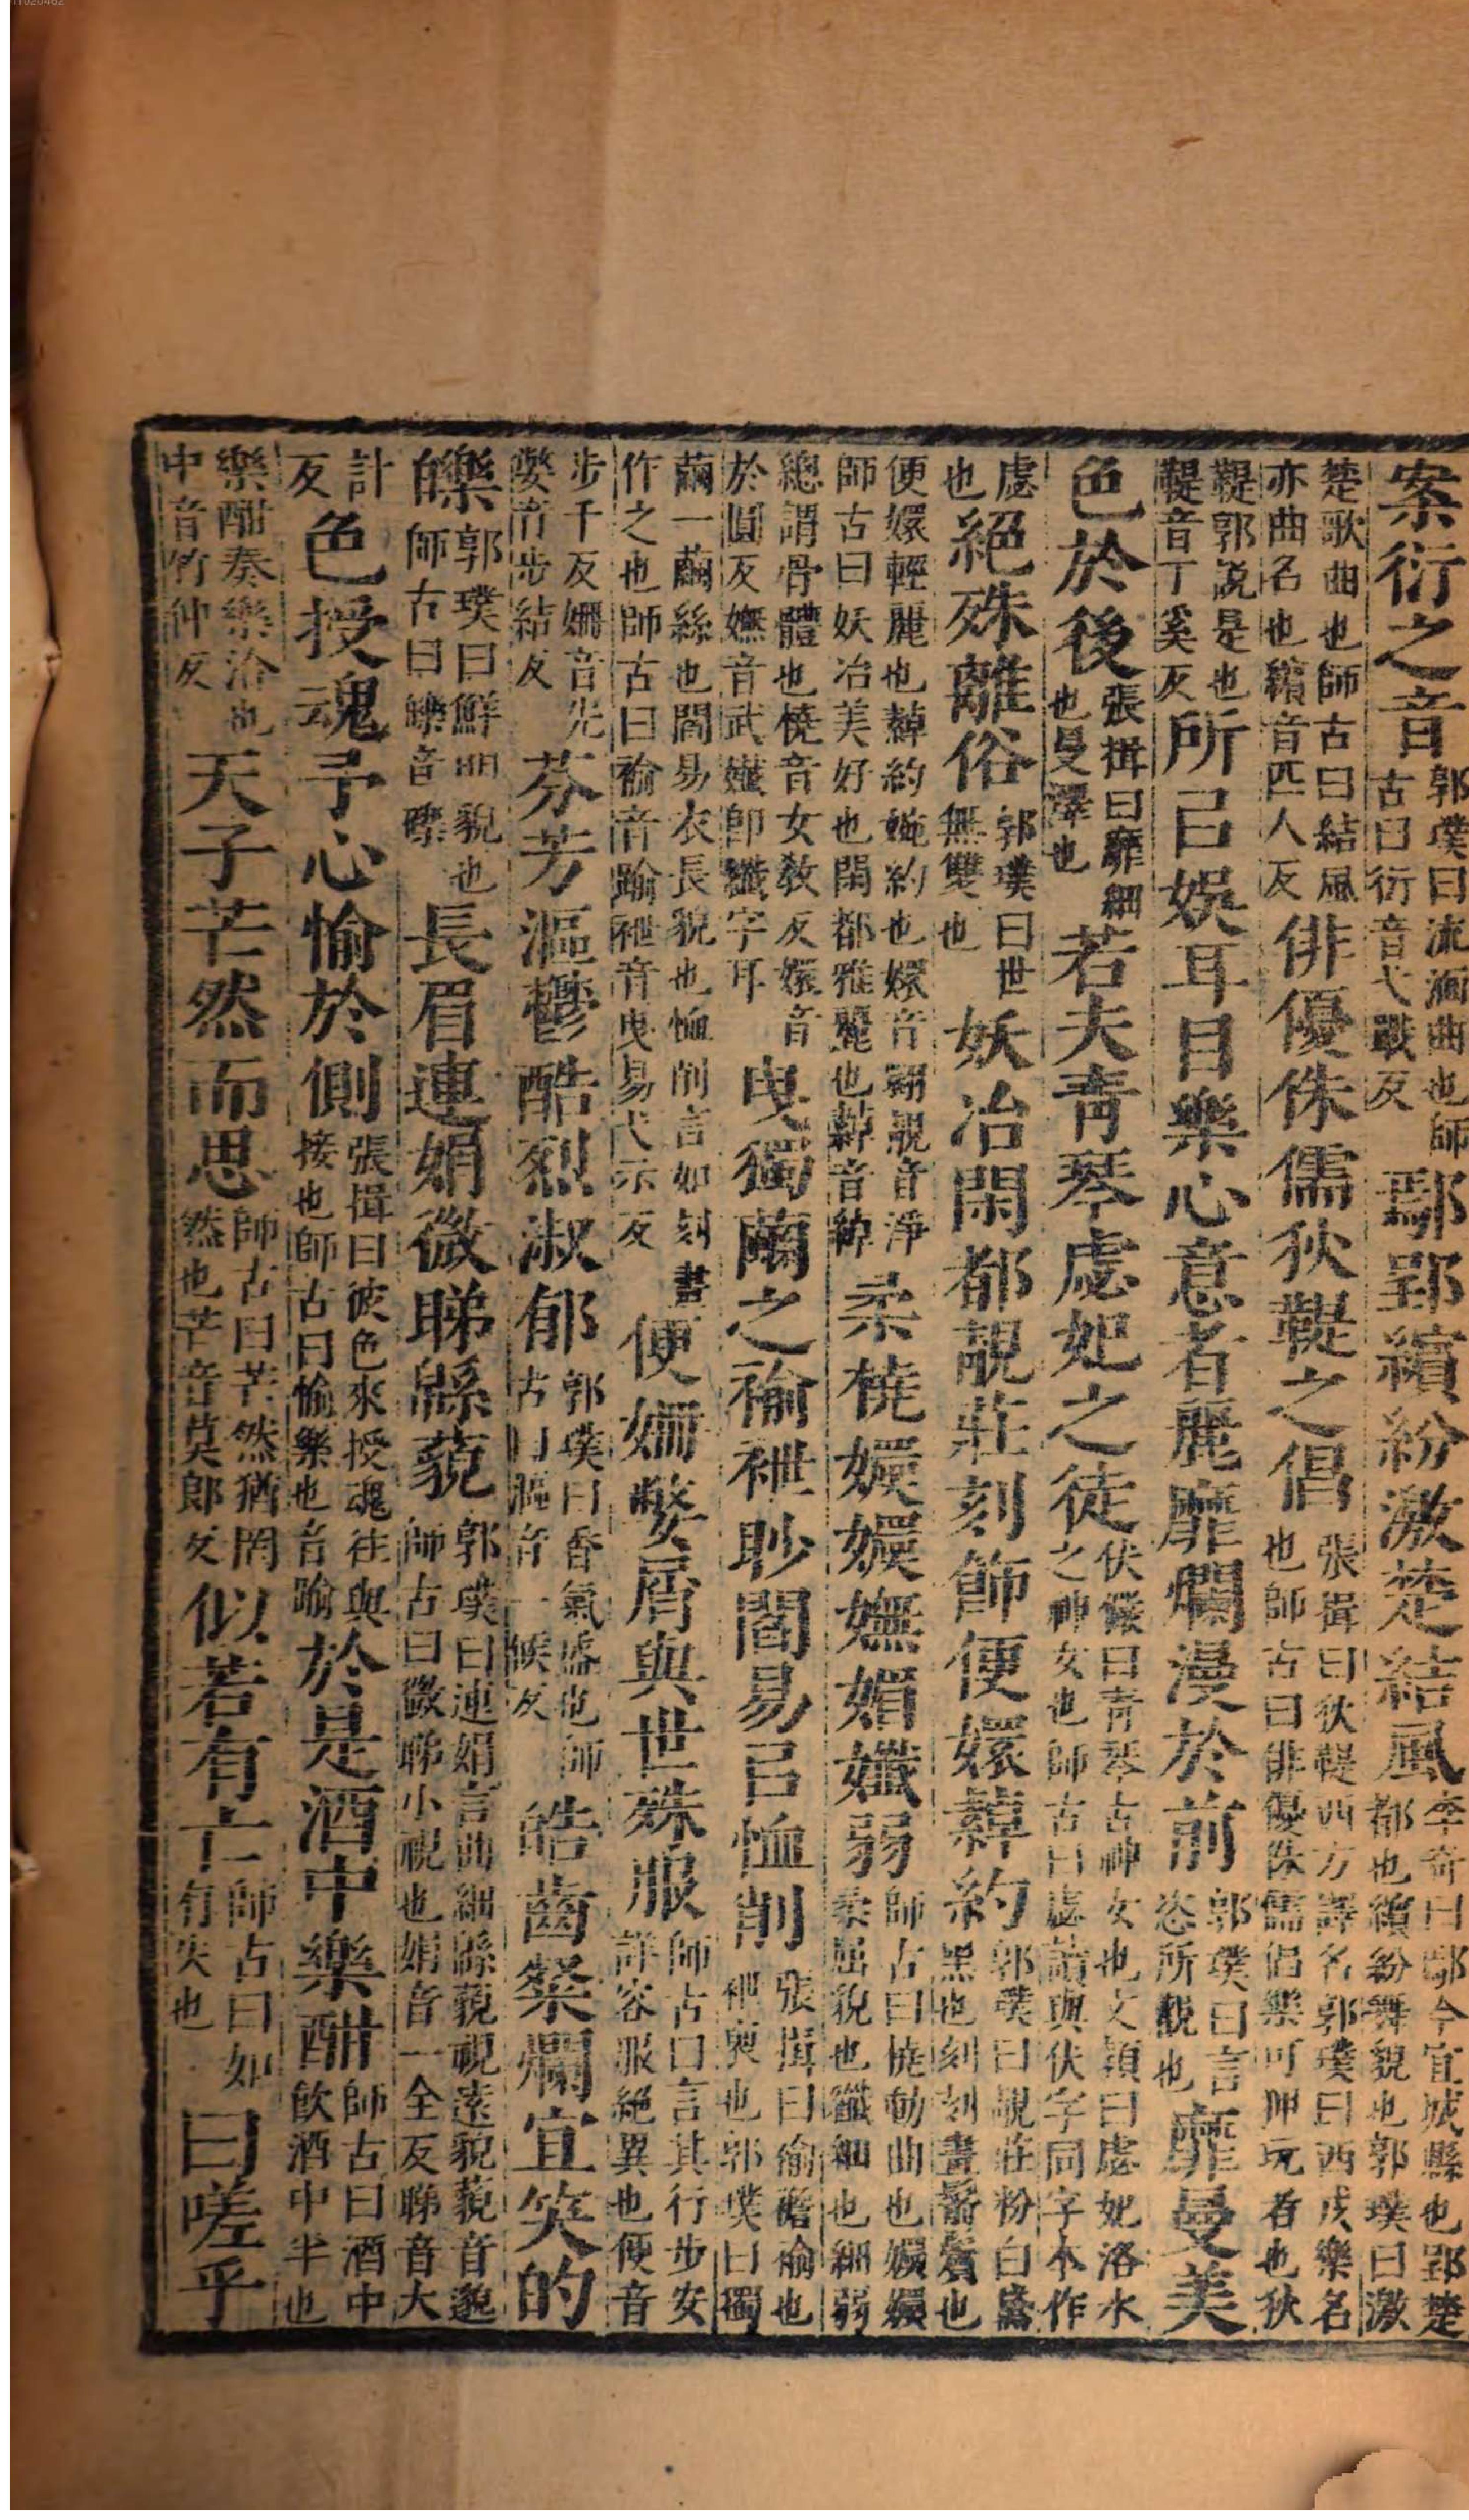 案衍之音郭璞曰流湎曲也師古曰衍音弋戰反鄢郢繽紛激楚結風李奇曰鄢今宜城縣也郢楚都也繽紛舞貌也郭璞曰激
楚歌曲也師古曰結風亦曲名也繽音匹人反俳優侏儒狄鞮之倡張揖曰狄鞮西方譯名郭璞曰西戎樂名也師古曰俳優侏儒倡樂可狎玩者也狄
鞮郭說是也鞮音丁奚反所㠯娛耳目樂心意者麗靡爛漫於前郭璞曰言恣所觀也靡曼美
色於後張揖曰靡細也曼澤也若夫青琴虙妃之徒伏儼曰青琴古神女也文穎曰虙妃洛水之神女也師古曰虙讀與伏字同字本作
虙也絕殊離俗郭璞曰世無雙也妖冶閑都靚莊刻飾便嬛繛約郭璞曰靚莊粉白黛黑也刻刻畫鬋鬢也
便嬛輕麗也繛約婉約也嬛音翾靚音淨師古曰妖冶美好也閑都雅麗也繛音綽柔橈嬽嬽嫵媚孅弱師古曰橈動曲也嬽嬽柔屈貌也孅細也細弱
總謂骨體也橈音女教反嬽音於圓反嫵音武孅即纖字耳曳獨繭之褕袣眇閻易㠯恤削張揖曰褕襜褕也袣褎也郭璞曰獨
繭一繭絲也閻易衣長貌也恤削言如刻畫作之也師古曰褕音踰袣音曳易弋示反便姍嫳屑與世殊服師古曰言其行步安詳容服絕異也便音
步千反姍音先嫳音步結反芬芳漚鬱酷烈淑郁郭璞曰香氣盛也師古曰漚音一候反皓齒粲爛宜笑的
皪郭璞曰鮮明貌也師古曰皪音礫長眉連娟微睇緜藐郭璞曰連娟言曲細緜藐視遠貌藐音邈師古曰微睇小視也娟音一全反睇音大
計反色授魂予心愉於側張揖曰彼色來授魂往與接也師古曰愉樂也音踰於是酒中樂酣師古曰酒中飲酒中半也
樂酣奏樂洽也中音竹仲反天子芒然而思師古曰芒然猶罔然也芒音莫郎反似若有亡師古曰如有失也曰嗟乎